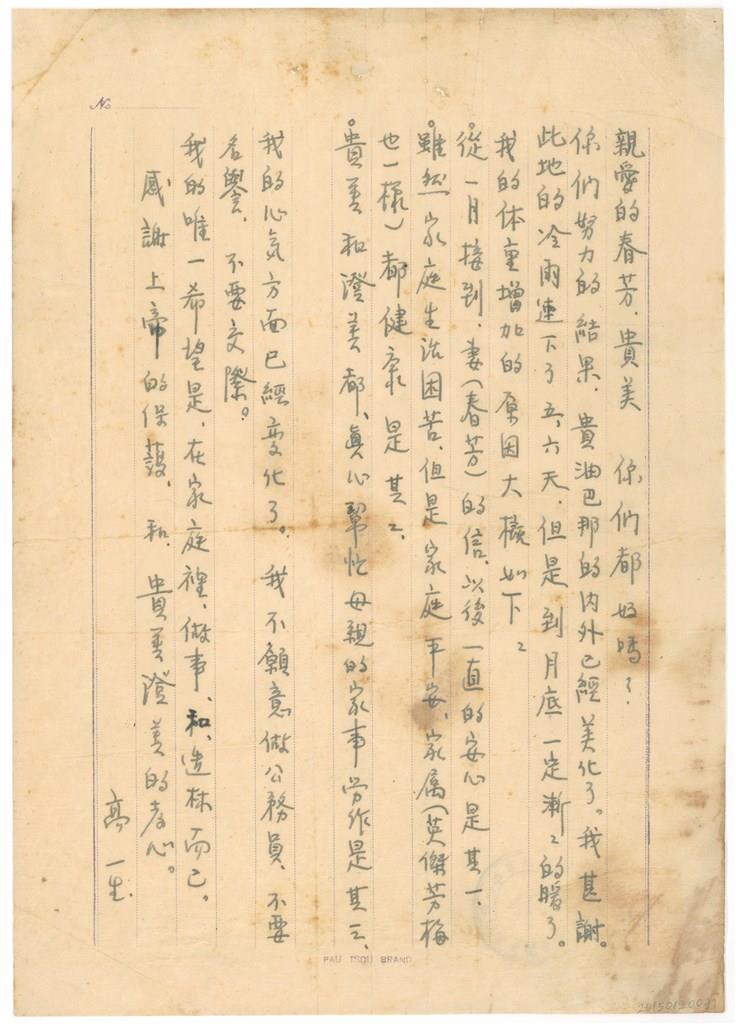 No
親愛的春芳、貴美　你們都好嗎？
你們努力的結果、貴油巴那的内外已經美化了。我甚謝。
此地的冷雨連下了五、六天、但是到月底一定漸々的暖了。
我的体重增加的原因大概如下：
。從一月接到、妻（春芳）的信、以後一直的安心是其一、
。雖然家庭生活困苦、但是家庭平安、家属（英傑芳梅
也一樣）都健康是其二、
。貴美和澄美都、真心幫忙母親的家事労作是其三、
我的心気方面已經変化了。我不願意做公務員、不要
名譽、不要交際。
我的唯一希望是、在家庭裡、做事、和、造林而已。
感謝上帝的保護、和、貴美澄美的孝心。
高一生.
PAU TSOU BRAND